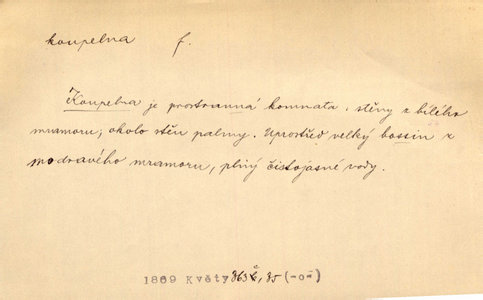 koupelna f.
Koupelna je prostranná komnata, stěny z bílého
mramoru, okolo stěn palmy. Uprostřed velký bassin z
modravého mramoru, plný čistojasné vody.
1869 Květy